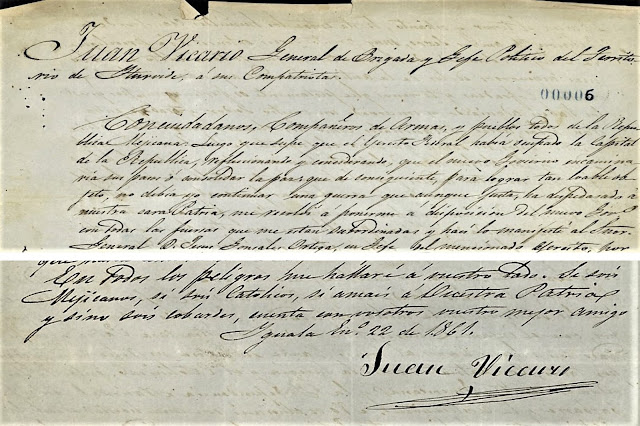 Juan Vicario General de Brigada y Gefe Politico del Territo-
rio de Iturvide, a sus Compatriotas.
00006
Conciudadanos, Compañeros de Armas, y pueblos todos de la Repu-
blica Mejicana: Luego que supe que el Egercito Federal habia ocupado la Capital
de la Republica, reflecsionando y considerando, que el nuevo Govierno
ria sus pasos á consolidar la paz; que de consiguiente, para lograr tan loable ob-
jeto, no debia yo continuar una guerra que aunque justa, ha despedasado a
nuestra cara Patria, me resolvi a ponerme á disposicion del nuevo Gov.º
con todas las fuersas que me estan subordinadas y hasi lo manifesté al Señor
General D. Jesus Gonsales Ortega, en Gefe del mencionado egercito, por
que
En todos los peligros me hallaré á vuestro lado. Si sois
Mejicanos, si sois Catolicos, si amais á Vuestra Patria
y si no sois cobardes, cuenta con vosotros vuestro mejor amigo
Yguala En.º 22 de 1861.
Juan Vicario